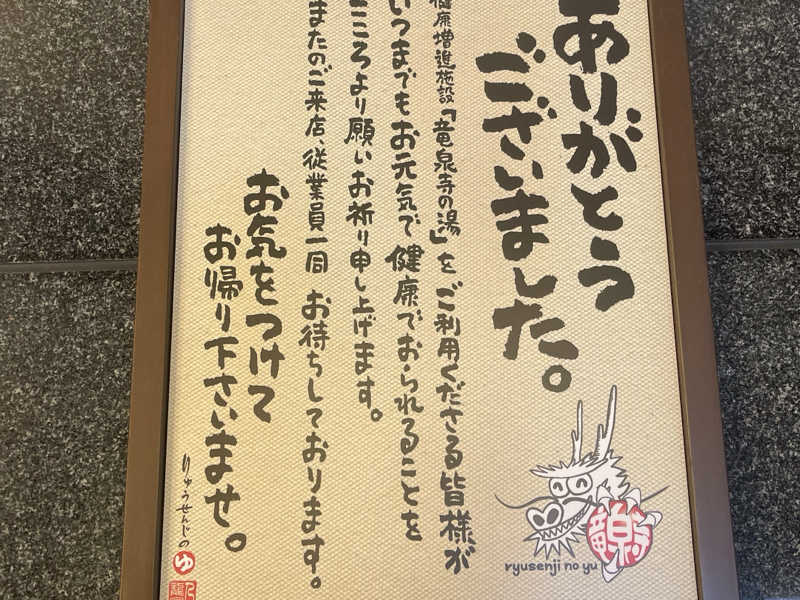 ありがとう
ございました。
健康増進施設「竜泉寺の湯」をご利用くださる皆様が
いつまでもお元気で健康でおられることを
こころより願いお祈り申し上げます。
またのご来店、従業員一同 お待ちしております。
お気をつけて
お帰り下さいませ。
りゅうせんじの ゆ
ryusenji no yu